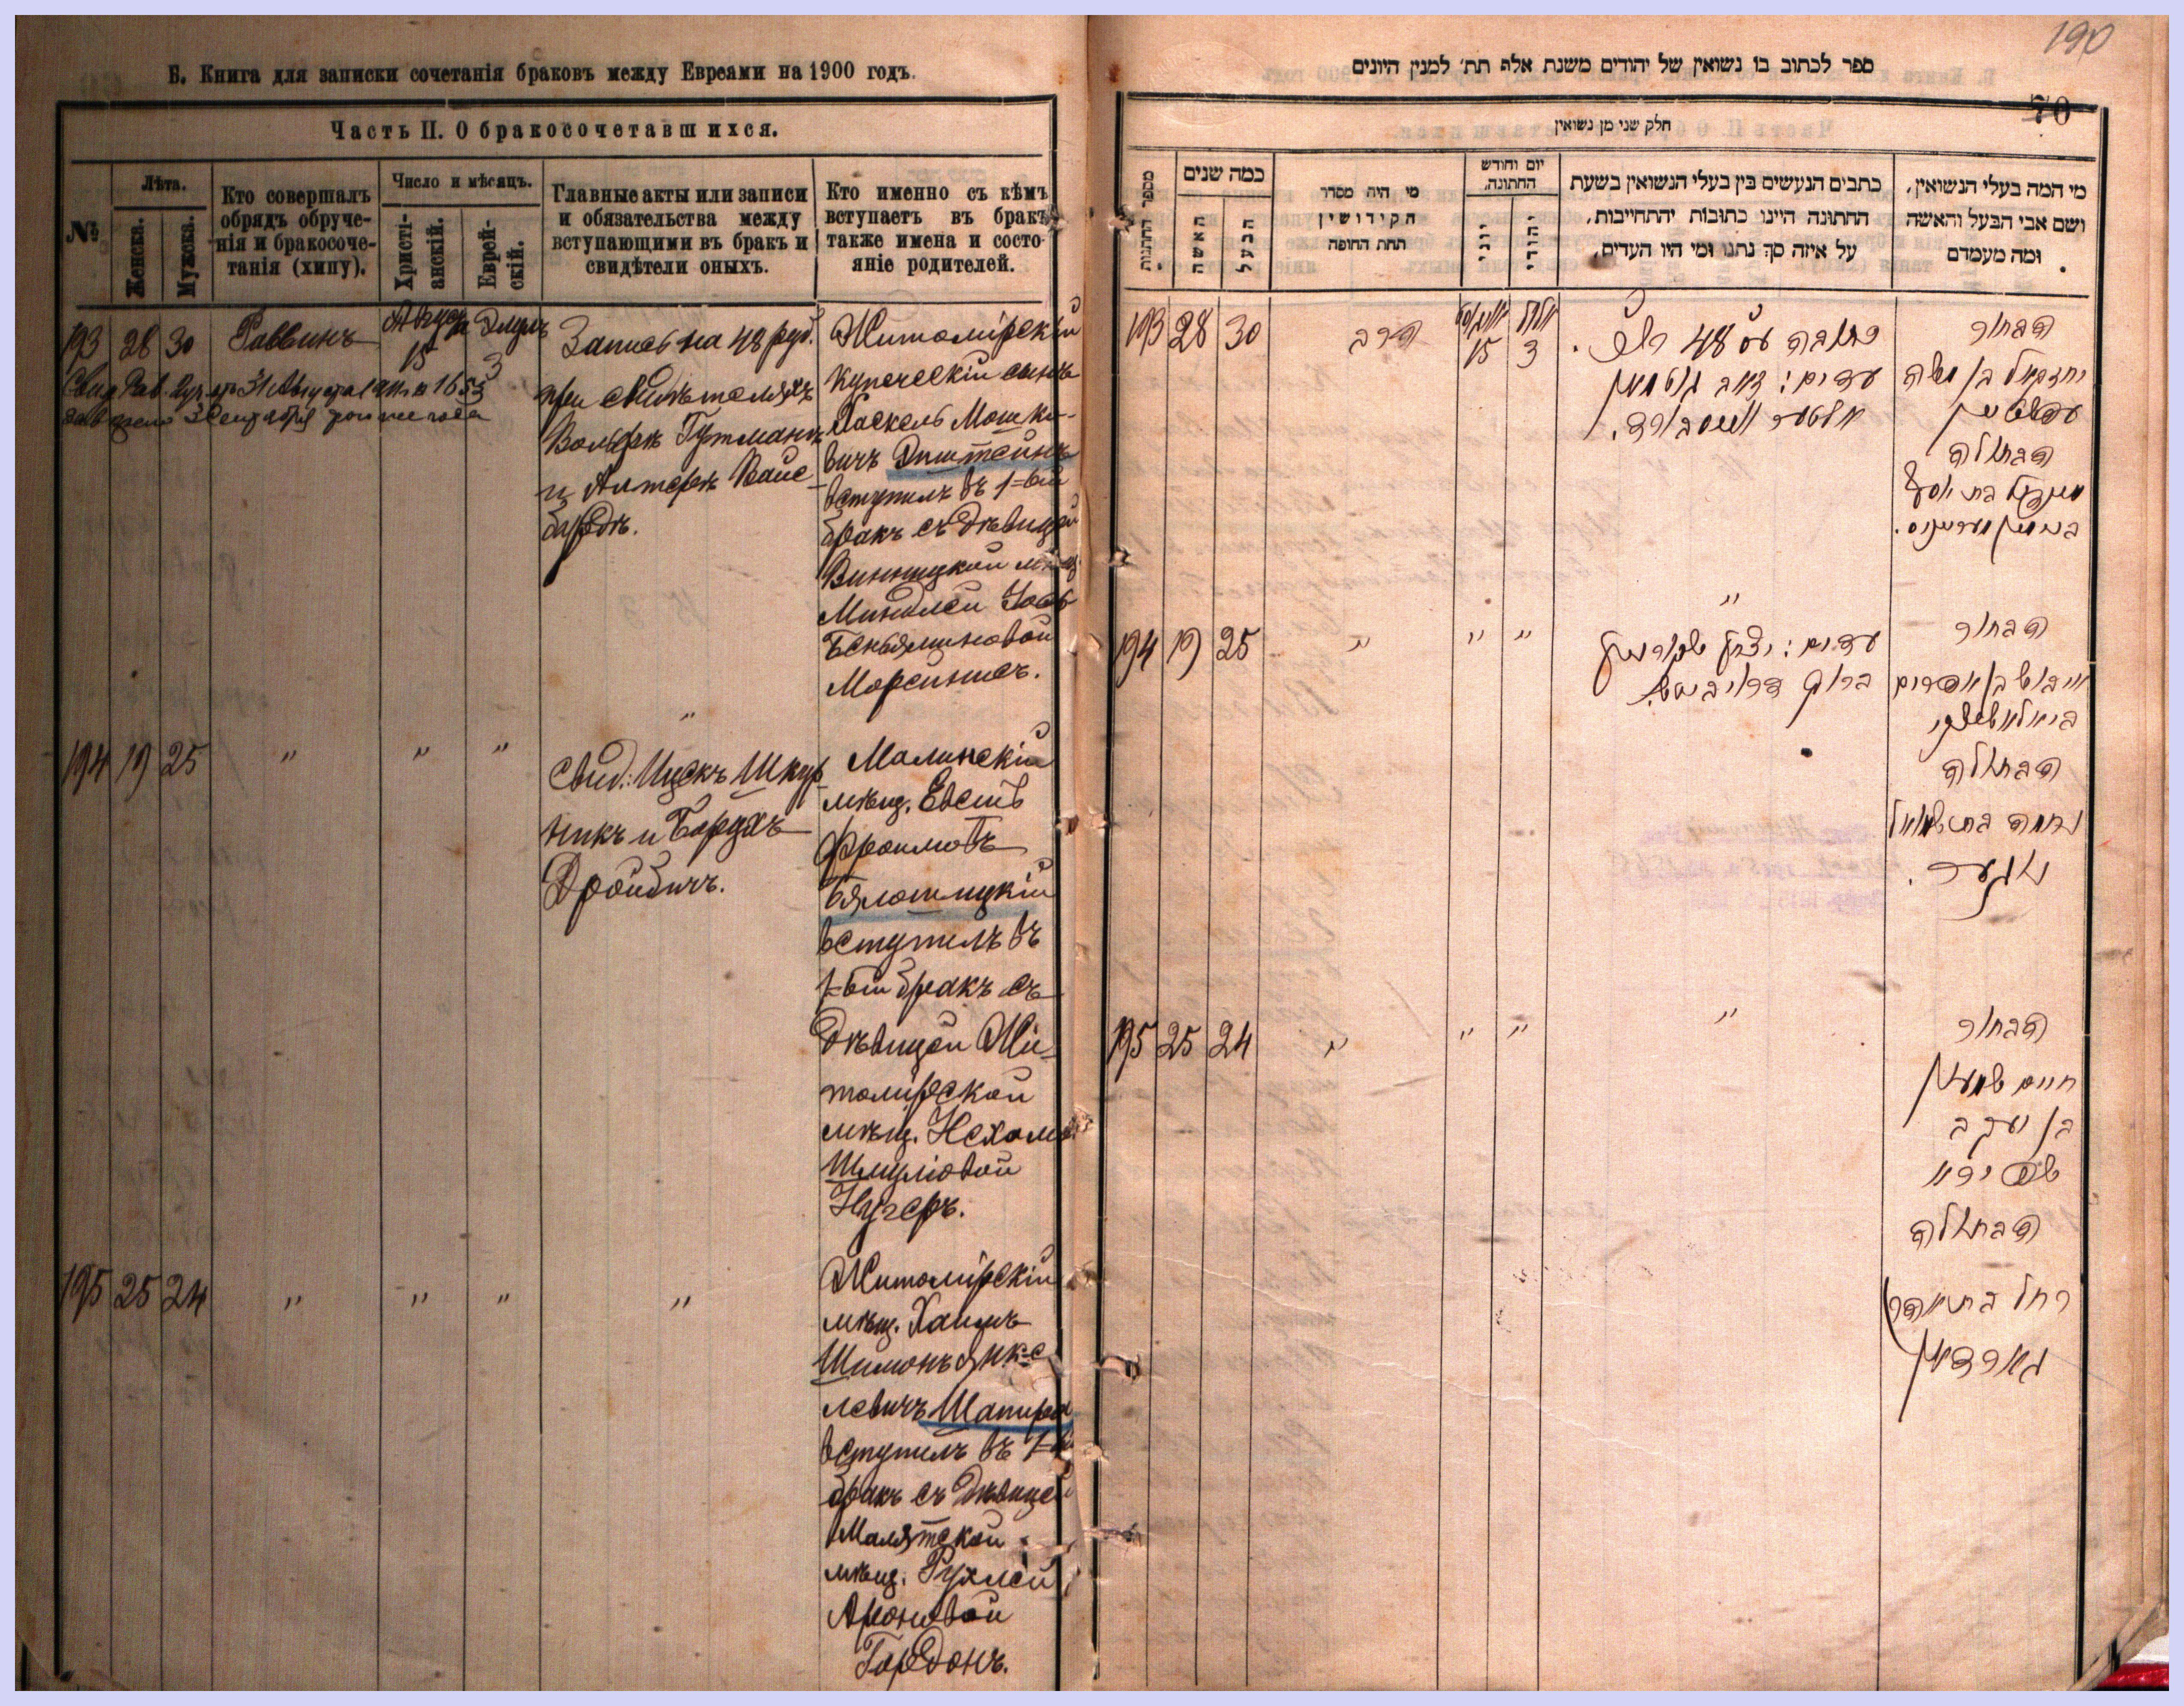 Б. Книга для записки сочетанія браковъ между Евреями на 1900 годъ.
Часть II. О бракосочетавшихся.
№
Лѣта.
Женска.
Мужска.
Кто совершалъ
обрядъ обруче-
нія и бракосоче-
танія (хипу).
Число и мѣсяцъ.
Христі-
анскій.
Еврей-
скій.
Главные акты или записи
и обязательства между
вступающими въ бракъ и
свидѣтели оныхъ.
Кто именно съ кѣмъ
вступаетъ въ бракъ
также имена и состо-
яніе родителей.
193 28 30 Раввинъ
Августа 15
Элулъ 3
Запись на 48 руб.
при свидѣтеляхъ
Вольфъ Гутманъ
и Алтеръ Вайс-
бардъ.
Житомірскій
купеческій сынъ
Хаскель Мошко-
вичъ Эпштейнъ
вступилъ въ 1-ый
бракъ съ дѣвицей
Винницкой мѣщ.
Миндлей Іось
Беньяминовой
194 19 25 " " " "
Свид: Ицекъ Шкур
никъ и Борухъ
Дройбичъ.
Малинскій
мѣщ.
Фроимовъ
Бялотицкій
вступилъ въ
1-ый бракъ съ
дѣвицей Жи-
томірской
мѣщ. Нехамой
Шмуліовой
Нугеръ.
195 25 24 " " " "
Житомірскій
мѣщ. Хаимъ
Шимонъ Янке
левичъ Шапиро
вступилъ въ 1-ый
бракъ съ дѣвицей
Малятской
мѣщ. Рухлей
Ароновой
Гордонъ.
190
ספר לכתוב בו נשואין של יהודים משנת אלף תת׳ למנין היונים
70
חלק שני מן נשואין
מספר החתונות
כמה שנים
האשה
הבעל
מי היה מסדר
הקידושין
תחת החופה
יום וחודש
החתונה.
יוני
יהודי
כתבים הנעשים בין בעלי הנשואין בשעת
החתונה היינו כתובות יהתחייבות,
על איזה סך נתנו ומי היו העדים,
מי המה בעלי הנשואין,
ושם אבי הבעל והאשה
ומה מעמדם
193 28 30 הרב
אויגוסט 15
אלול 3
כתובה על 48
עדים: זאב גוטמאן
הבחור
יחזקאל בן משה
עפשטיין
הבתולה
194 19 25 " " " "
עדים: יצחק שקורניק
ברוך דרויביטש.
הבחור
הבתולה
נחמה בת שמואל
נוגער.
195 25 24 " " " "
הבחור
חיים שמעון
בן יעקב
שפירא
הבתולה
רחל בת אהרן
גארדאן